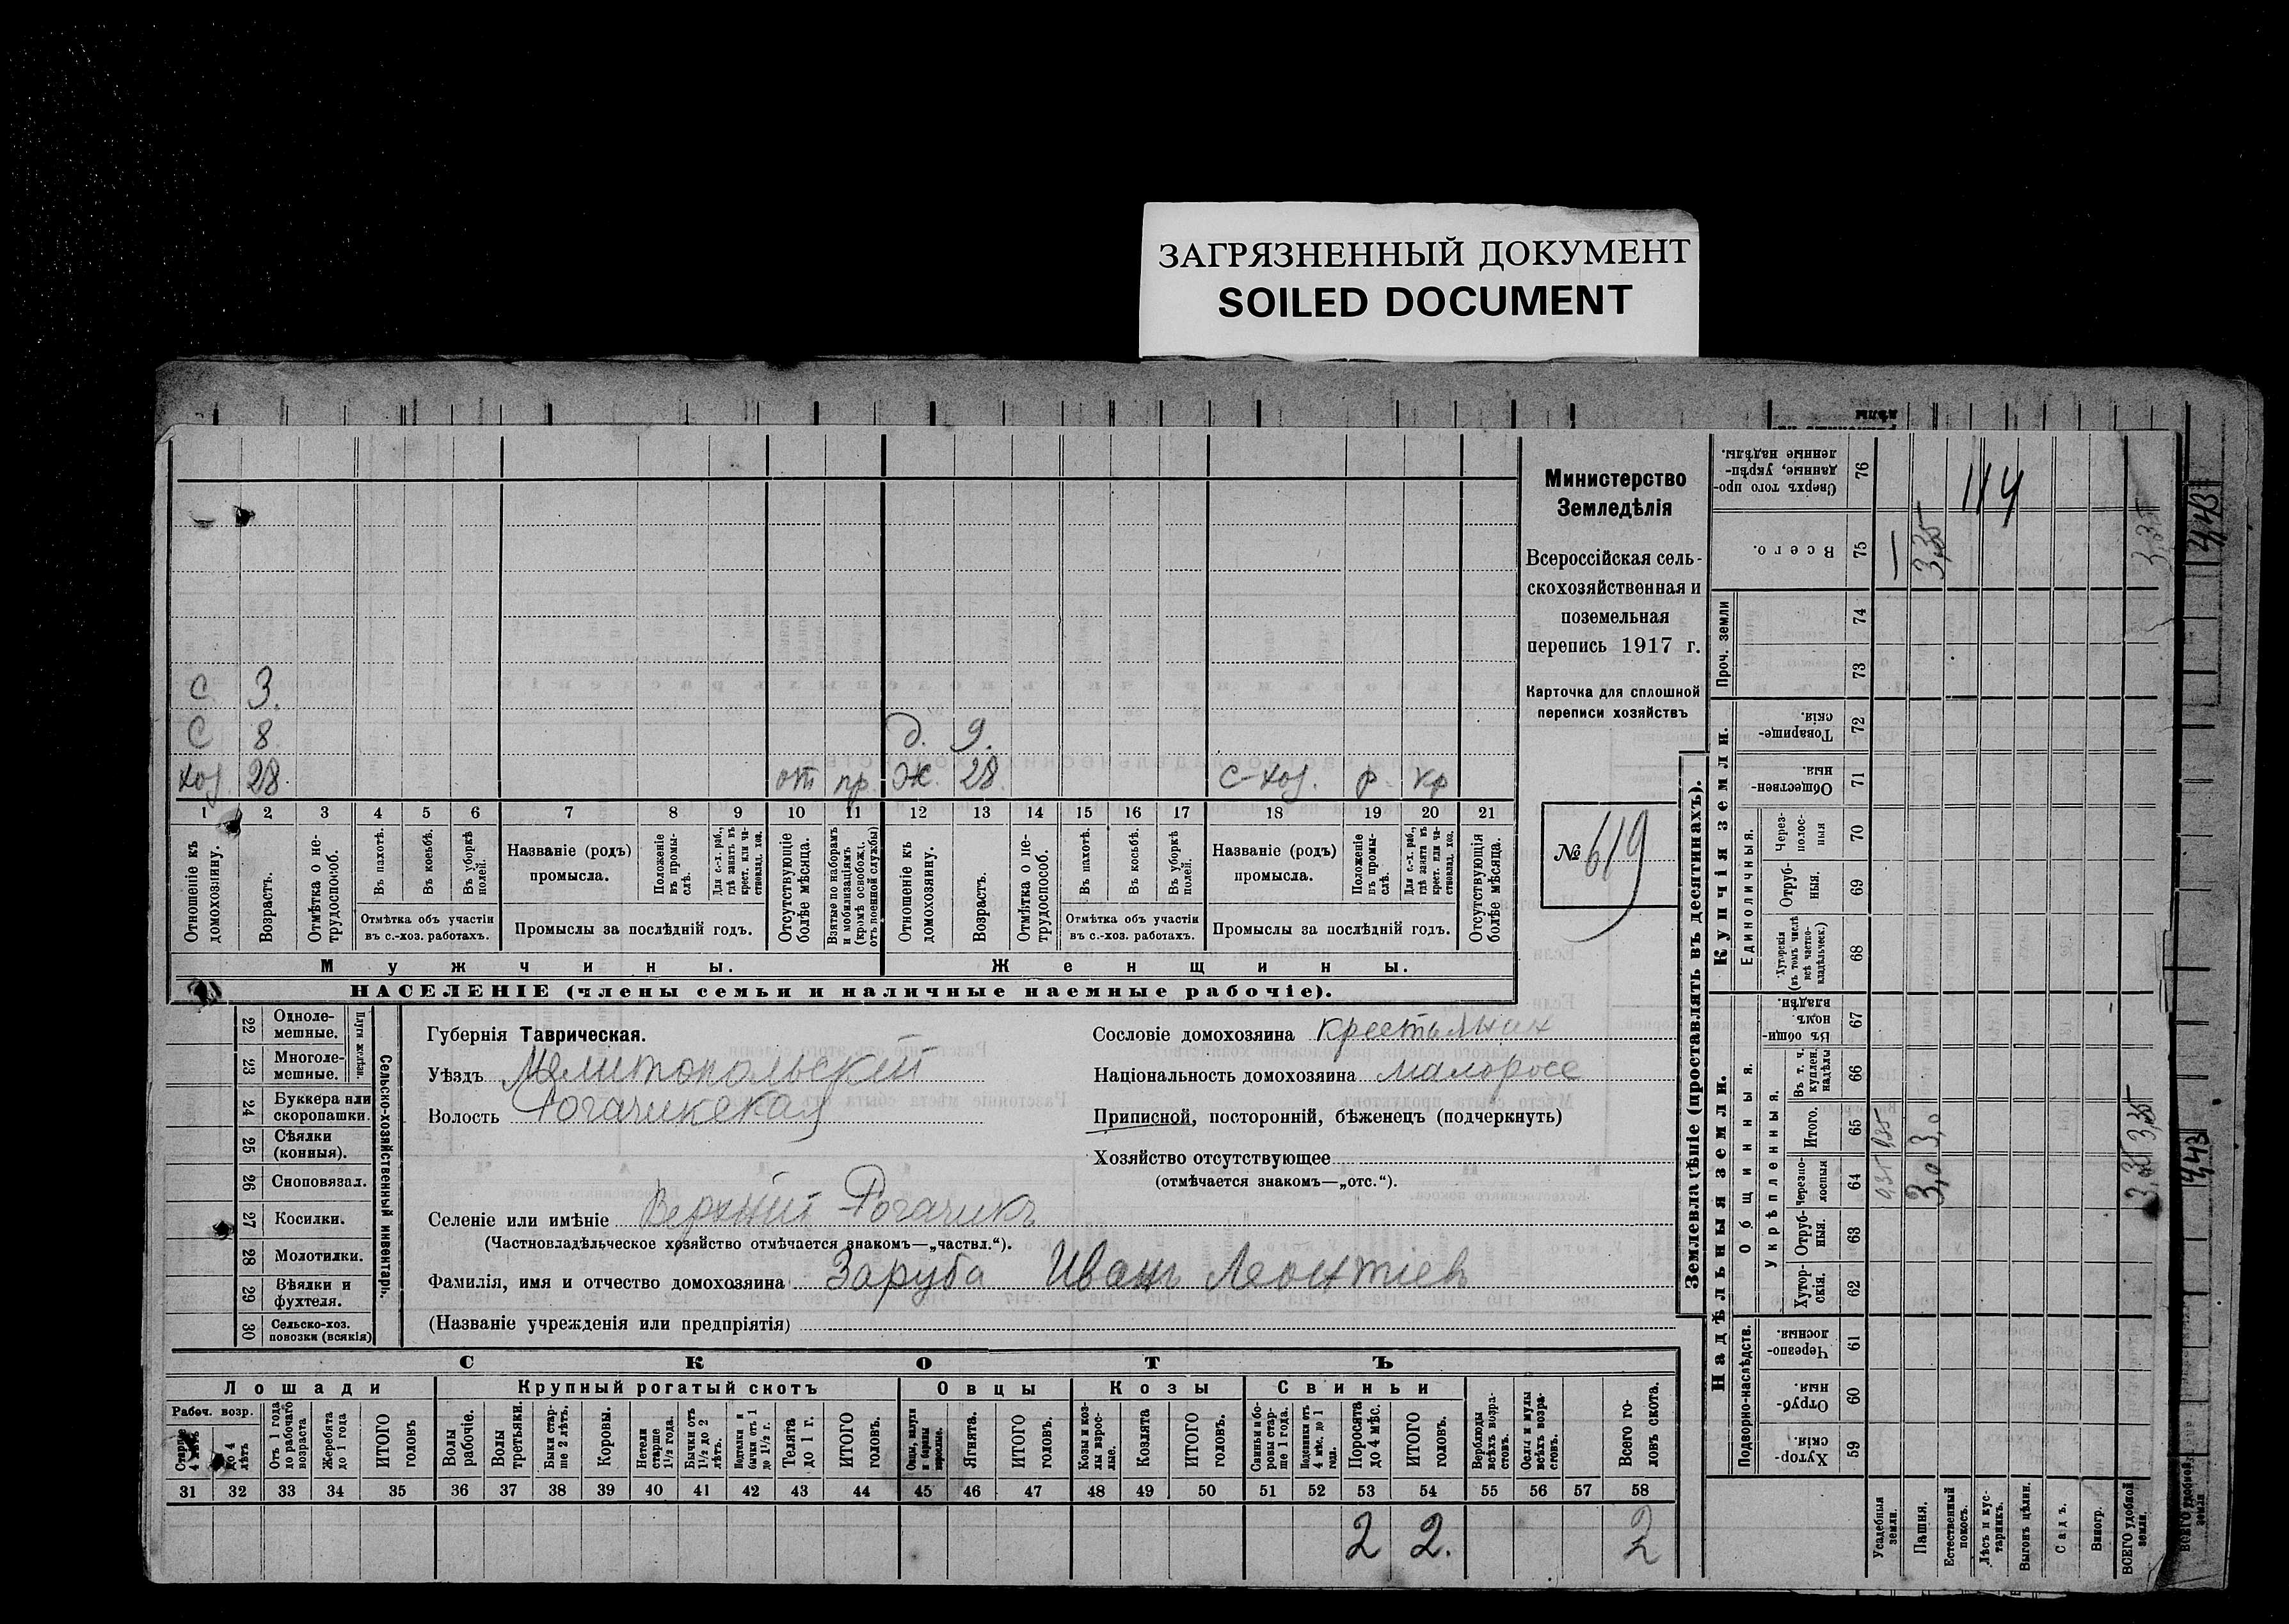 ЗАГРЯЗНЕННЫЙ ДОКУМЕНТ
SOILED DOCUMENT
с. 3.
с 8. д. 9.
хоз. 28 от пр. ж. 28 с-хоз. р. кр
1 2 3 4 5 6 7 8 9 10 11 12 13 14 15 16 17 18 19 20 21
Отношеніе къ домохозяину.
Возрастъ.
Отмѣтка о не-трудоспособ.
Въ пахотѣ.
Въ косьбѣ.
Въ уборкѣ полей.
Отмѣтка объ участіи въ с.-хоз. работахъ.
Названіе (родъ) промысла.
Положеніе въ промы-слѣ.
Для с.-х. раб., гдѣ занятъ въ крест. или ча-стновлад. хоз.
Промыслы за послѣдній годъ.
Отсутствующіе болѣе мѣсяца.
Взятые по наборамъ и мобилизаціямъ (кромѣ освобожд. отъ военной службы)
Отношеніе къ домохозяину.
Возрастъ.
Отмѣтка о не-трудоспособ.
Въ пахотѣ.
Въ косьбѣ.
Въ уборкѣ полей.
Отмѣтка объ участіи въ с.-хоз. работахъ.
Названіе (родъ) промысла.
Положеніе въ промы-слѣ.
Для с.-х. раб., гдѣ занята въ крест. или ча-стновлад. хоз.
Промыслы за послѣдній годъ.
Отсутствующія болѣе мѣсяца.
Мужчины. Женщины.
НАСЕЛЕНІЕ (члены семьи и наличные наемные рабочіе).
Министерство
Земледѣлія
Всероссійская сель-
скохозяйственная и
поземельная
перепись 1917 г.
Карточка для сплошной
переписи хозяйствъ
№ 619
22 Одноле-мешные.
23 Многоле-мешные.
Плуги желѣзн.
24 Буккера или скоропашки.
25 Сѣялки (конныя).
26 Сноповязал.
27 Косилки.
28 Молотилки.
29 Вѣялки и фухтеля.
30 Сельско-хоз. повозки (всякія)
Сельско-хозяйственный инвентарь.
Губернія Таврическая.
Уѣздъ Мелитопольскій
Волость Рогачикская
Сословіе домохозяина крестьянин
Національность домохозяина малоросс
Приписной, посторонній, бѣженецъ (подчеркнуть)
Хозяйство отсутствующее
(отмѣчается знакомъ—„отс.“).
Селеніе или имѣніе Верхній Рогачикъ
(Частновладѣльческое хозяйство отмѣчается знакомъ—„частвл.“).
Фамилія, имя и отчество домохозяина Заруба Иванъ Леонтіев
(Названіе учрежденія или предпріятія)
СКОТЪ
Лошади Крупный рогатый скотъ Овцы Козы Свиньи
Рабоч. возр.
Старше 4 лѣтъ
до 4 лѣтъ
Отъ 1 года до рабочаго возраста
Жеребята до 1 года
ИТОГО головъ
Волы рабочіе.
Волы третьяки.
Быки стар-ше 2 лѣтъ.
Коровы.
Нетели старше 1½ года.
Бычки отъ 1½ до 2 лѣтъ.
Подтелки и бычки отъ 1 до 1½ г.
Телята до 1 г.
ИТОГО головъ.
Овцы, валухи и бараны взрослые.
Ягнята.
ИТОГО головъ.
Козы и коз-лы взрос-лые.
Козлята
ИТОГО головъ.
Свиньи и бо-ровы стар-ше 1 года.
Подсвинки отъ 4 мѣс. до 1 года.
Поросята до 4 мѣс.
ИТОГО головъ.
Верблюды всѣхъ возра-стовъ.
Ослы и мулы всѣхъ возра-стовъ.
Всего го-ловъ скота.
31 32 33 34 35 36 37 38 39 40 41 42 43 44 45 46 47 48 49 50 51 52 53 54 55 56 57 58
2 2. 2
Землевладѣніе (проставлять въ десятинахъ).
Надѣльныя земли.
Купчія земли.
Проч. земли
Подворно-наслѣдств.
Общинныя.
Укрѣпленныя.
Единоличныя.
Сверхъ того про-данные, укрѣп-ленные надѣлы. 76
Всего. 75
74
73
Товарище-скія. 72
Обществен-ныя. 71
Через-полос-ныя 70
Отруб-ныя. 69
Хуторскія (въ томъ числѣ всѣ частно-владѣльческ.) 68
Въ общи-номъ владѣн. 67
Въ т. ч. куплен. надѣлы 66
Итого. 65
Черезпо-лосныя 64
Отруб-ныя. 63
Хутор-скія. 62
Черезпо-лосныя. 61
Отруб-ныя. 60
Хутор-скія 59
Усадебныя земли.
Пашня.
Естественный покосъ.
Лѣсъ и кус-тарникъ.
Выгонъ цѣлин.
Садъ.
Виногр.
ВСЕГО удобной земли.
114
3,35
3,35
4,43
3,0 3,0
3,35 3,35
4,43
ВСЕГО удобной земли